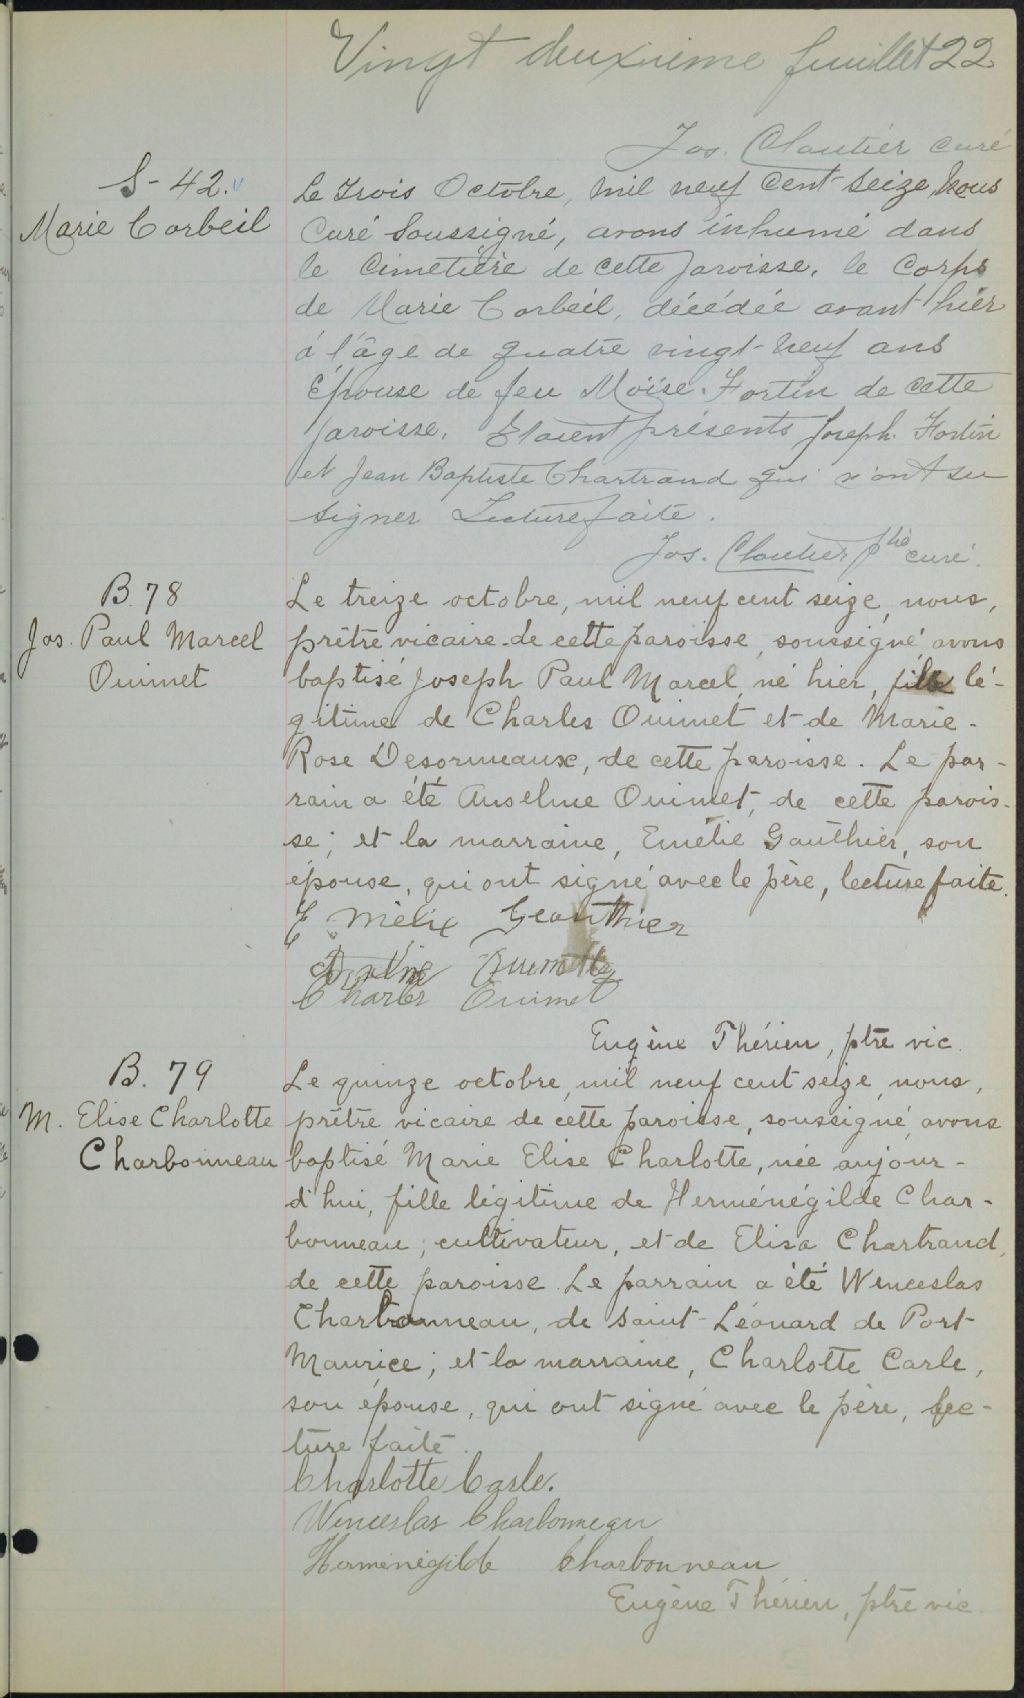 Vingt deuxième feuillet 22
Jos. Cloutier curé
S - 42.
Marie Corbeil
Le trois Octobre, mil neuf cent seize Nous
Curé Soussigné, avons inhumé dans
le Cimetière de cette paroisse, le Corps
de Marie Corbeil, décédée avant hier
à l'âge de quatre vingt-neuf ans
Épouse de feu Moïse Fortin de cette
paroisse. Étaient présents Joseph Fortin
et Jean Baptiste Chartrand qui n'ont su
signer Lecture faite.
Jos. Cloutier ptre curé.
B. 78
Jos. Paul Marcel
Ouimet
Le treize octobre, mil neuf cent seize, nous,
prêtre vicaire de cette paroisse, soussigné, avons
baptisé Joseph Paul Marcel, né hier, fils lé-
gitime de Charles Ouimet et de Marie-
Rose Desormeaux, de cette paroisse. Le par-
rain a été Anselme Ouimet, de cette parois-
se; et la marraine, Emélie Gauthier, son
épouse, qui ont signé avec le père, lecture faite.
E Mélie Geauthier
Charles Ouimet
Eugène Thérien, ptre vic.
B. 79
M. Elise Charlotte
Charbonneau
Le quinze octobre, mil neuf cent seize, nous,
prêtre vicaire de cette paroisse, soussigné, avons
baptisé Marie Elise Charlotte, née aujour-
d'hui, fille légitime de Herménégilde Char-
bonneau, cultivateur, et de Elisa Chartrand,
de cette paroisse. Le parrain a été Wenceslas
Charbonneau, de Saint-Léonard de Port
Maurice; et la marraine, Charlotte Carle,
son épouse, qui ont signé avec le père, lec-
ture faite.
Charlotte Carle.
Wenceslas Charbonneau
Herménégilde Charbonneau
Eugène Thérien, ptre vic.